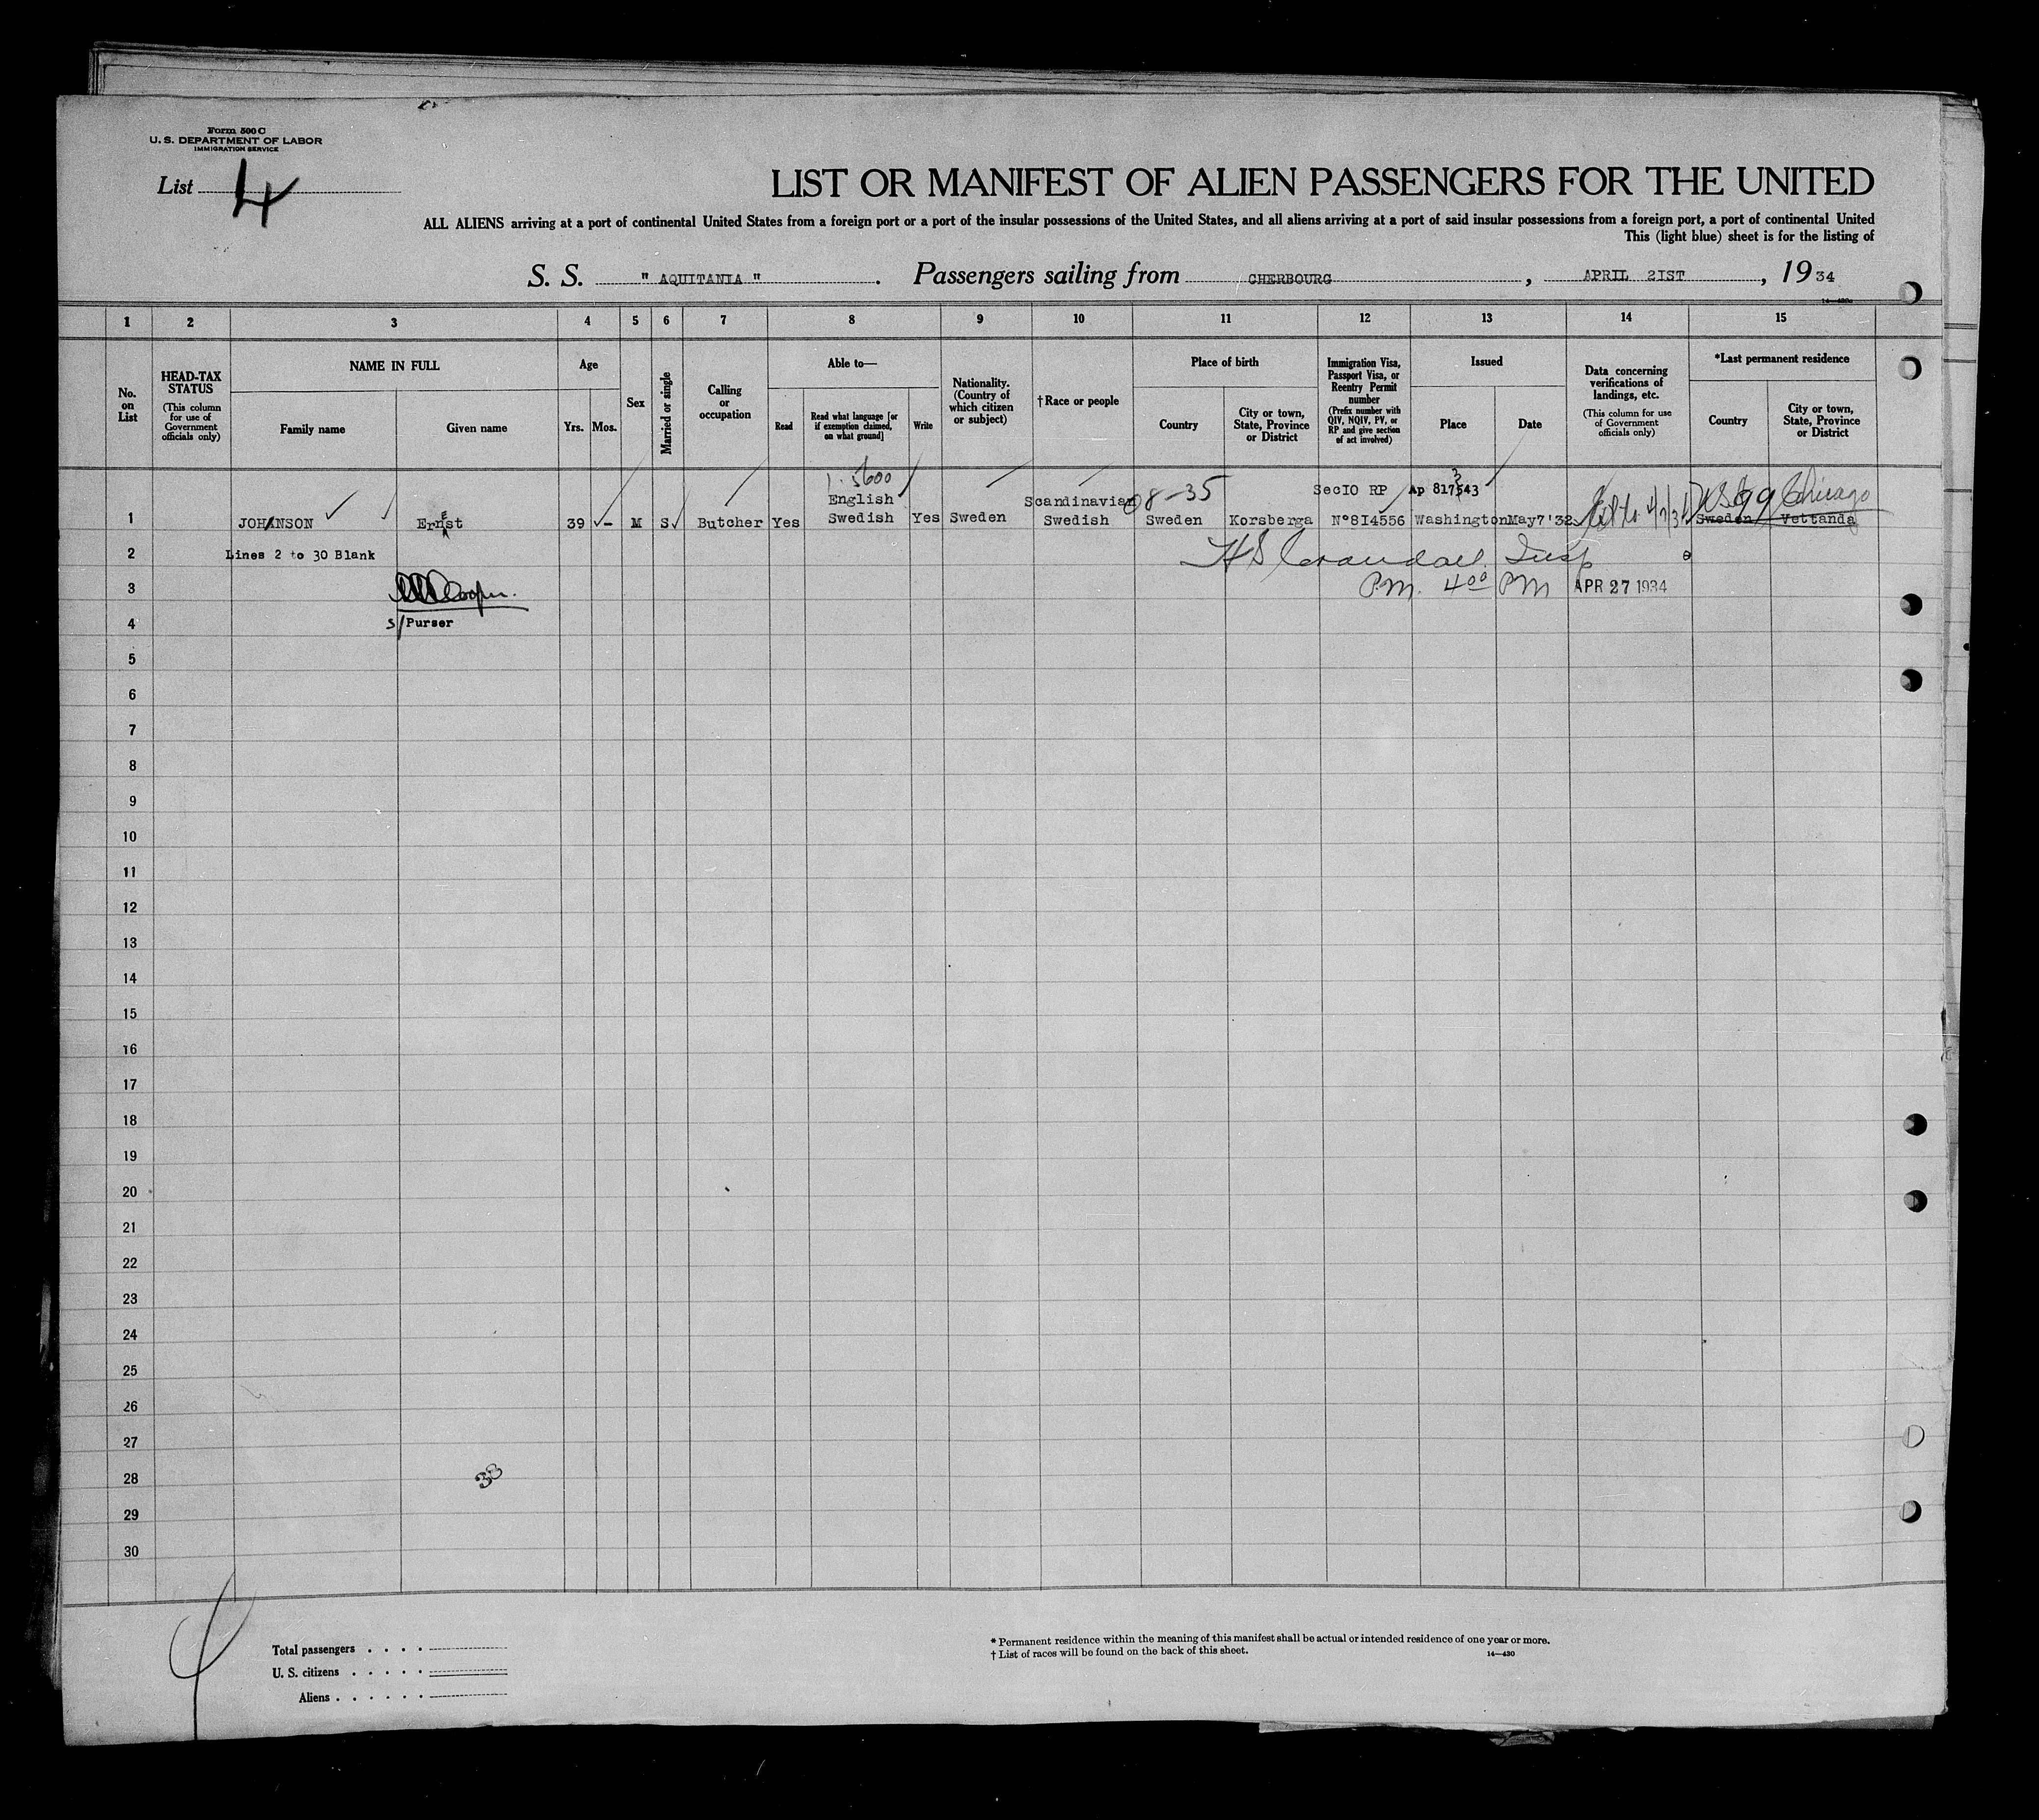 Form 500 C
U. S. DEPARTMENT OF LABOR
IMMIGRATION SERVICE
List 4
LIST OR MANIFEST OF ALIEN PASSENGERS FOR THE UNITED
ALL ALIENS arriving at a port of continental United States from a foreign port or a port of the insular possessions of the United States, and all aliens arriving at a port of said insular possessions from a foreign port, a port of continental United
This (light blue) sheet is for the listing of
S. S. " AQUITANIA ". Passengers sailing from CHERBOURG, APRIL 21ST, 1934
1 2 3 4 5 6 7 8 9 10 11 12 13 14 15
No. on List
HEAD-TAX STATUS
(This column for use of Government officials only)
NAME IN FULL
Family name
Given name
Age
Yrs.
Mos.
Sex
Married or single
Calling or occupation
Able to—
Read
Read what language [or if exemption claimed, on what ground]
Write
Nationality. (Country of which citizen or subject)
†Race or people
Place of birth
Country
City or town, State, Province or District
Immigration Visa, Passport Visa, or Reentry Permit number
(Prefix number with QIV, NQIV, PV, or RP and give section of act involved)
Issued
Place
Date
Data concerning verifications of landings, etc.
(This column for use of Government officials only)
*Last permanent residence
Country
City or town, State, Province or District
5600
English Scandinavian 08-35 Sec10 RP Ap 817543 3 99 Chicago
1 JOHANSON Ernst E 39 - M S Butcher Yes Swedish Yes Sweden Swedish Sweden Korsberga N°814556 Washington May7'32 Sweden Vettanda
2 Lines 2 to 30 Blank H S Crandall Insp
3 Cooper. PM. 4⁰⁰ PM APR 27 1934
4 s/Purser
5
6
7
8
9
10
11
12
13
14
15
16
17
18
19
20
21
22
23
24
25
26
27
28 38
29
30
Total passengers . . . .
U. S. citizens . . . . .
Aliens . . . . . .
* Permanent residence within the meaning of this manifest shall be actual or intended residence of one year or more.
† List of races will be found on the back of this sheet.
14—430